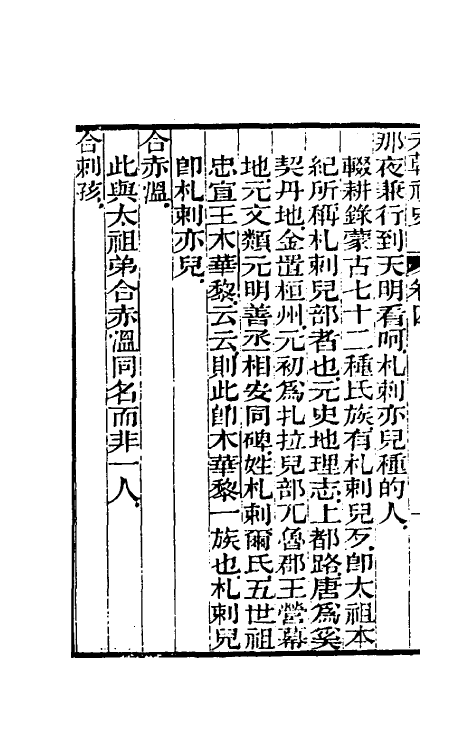 元朝祕史 卷四
那夜兼行到天明看呵札剌亦兒種的人
輟耕錄蒙古七十二種氏族有札剌兒歹卽太祖本
紀所稱札剌兒部者也元史地理志上都路唐爲奚
契丹地金置桓州元初爲扎拉兒部兀魯郡王營幕
地元文類元明善丞相安同碑姓札剌爾氏五世祖
忠宣王木華黎云云則此卽木華黎一族也札剌兒
卽札剌亦兒
合赤溫
此與太祖弟合赤溫同名而非一人
合剌孩